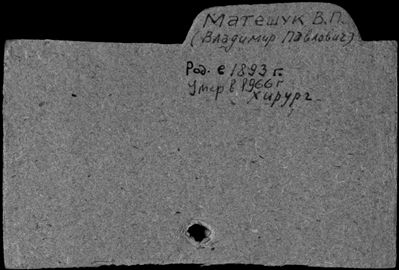 Матешук В.П.
(Владимир Павлович)
Род. в 1893 г.
Умер в 1966 г
хирург